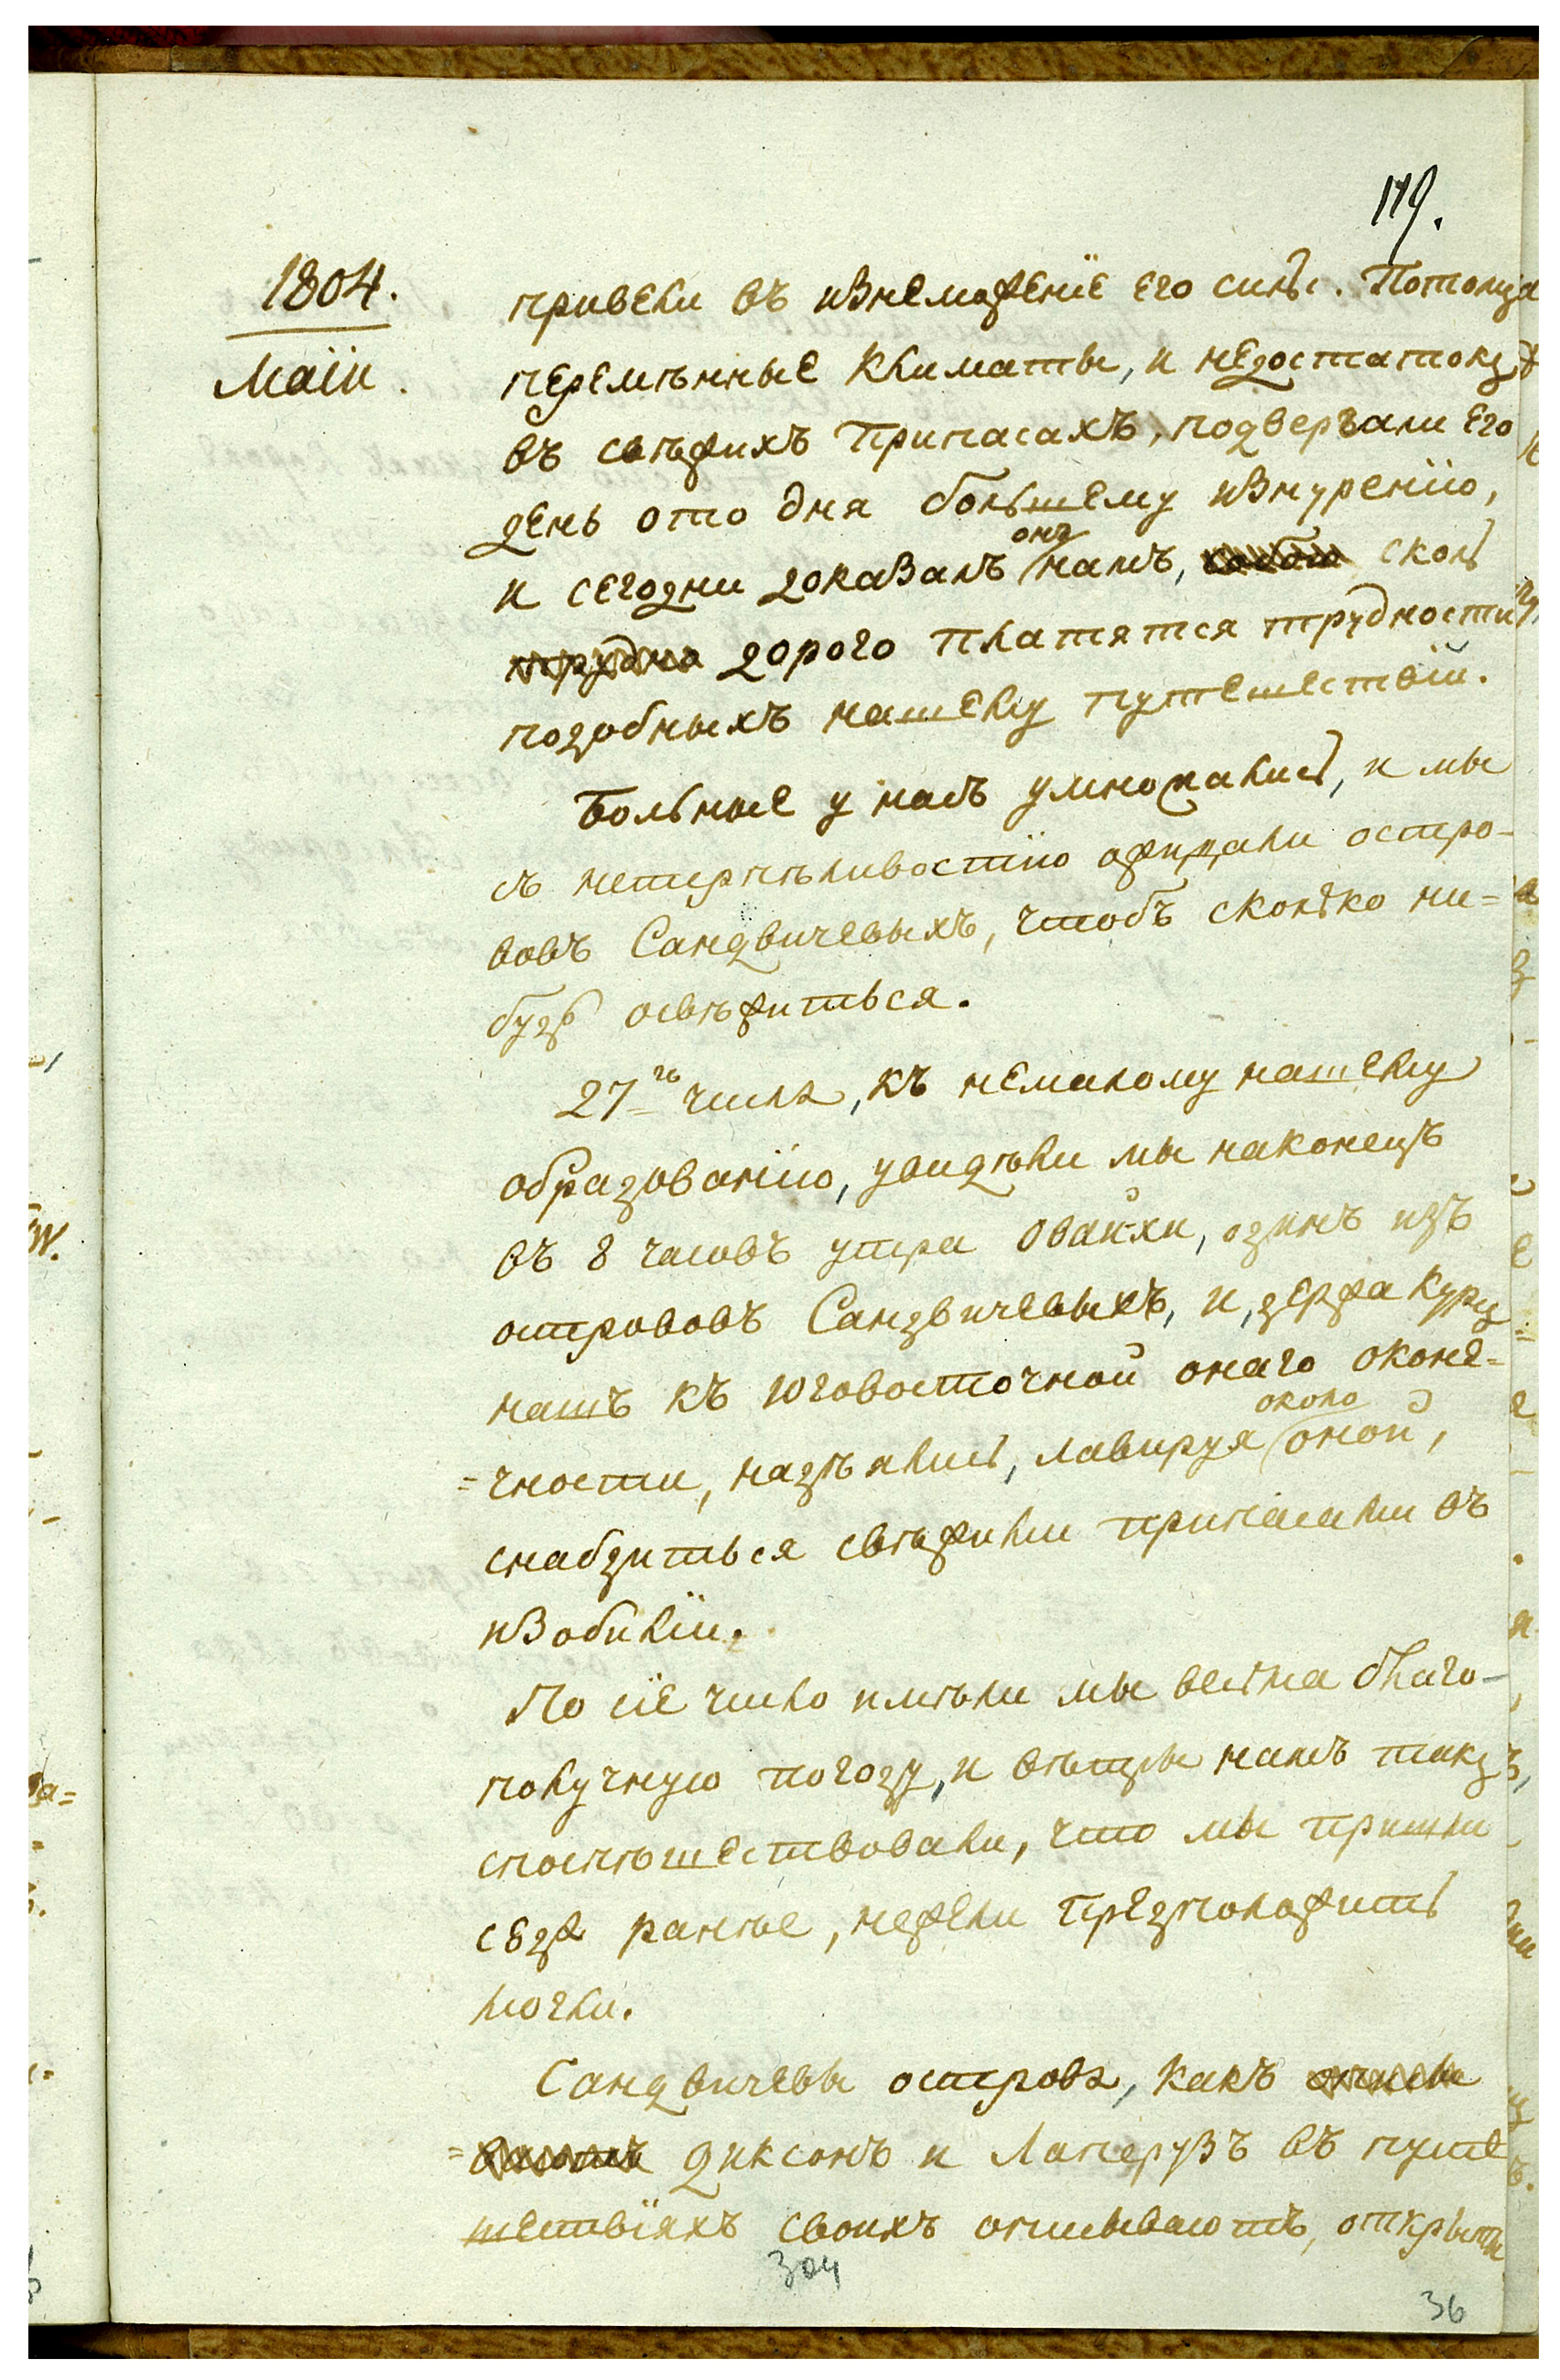 119.
1804.
Маіи.
привели въ изнеможеніе его силы. Потомъ
перемѣнные климаты, и недостатокъ
въ свѣжихъ припасахъ, подвергали его
день ото дня большему изнуренію,
и сегодни доказалъ онъ намъ, сколь
трудно дорого платятся трудности
подобныхъ нашему путешествій.
Больные у насъ умножались, и мы
съ нетерпѣливостію ожидали остро-
вовъ Сандвичевыхъ, чтобъ сколько ни=
будь освѣжиться.
27го числа, къ немалому нашему
образованію, увидѣли мы наконецъ
въ 8 часовъ утра Овайхи, одинъ изъ
острововъ Сандвичевыхъ, и, держа курсъ
нашъ къ юговосточной онаго оконе=
=чности, надѣялись, лавируя около оной,
снабдиться свѣжими припасами въ
изобиліи.
По сіе число имѣли мы весьма благо-
получную погоду, и вѣтры намъ такъ
споспѣшествовали, что мы пришли
сюда ранѣе, нежели предположить
могли.
Сандвичевы острова, какъ
Диксонъ и Лаперузъ въ путе
шествіяхъ своихъ описываютъ, открыты
304
36